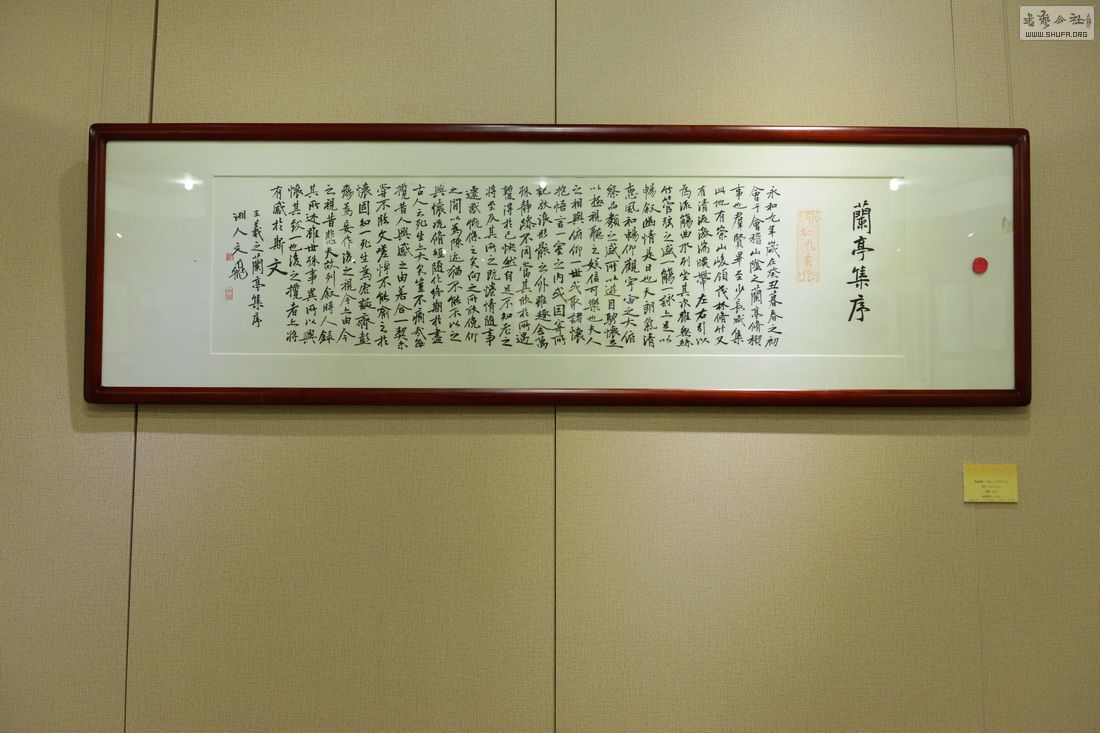 蘭亭集序
永和九年歲在癸丑暮春之初
會于會稽山陰之蘭亭脩稧
事也羣賢畢至少長咸集
此地有崇山峻領茂林脩竹又
有清流激湍暎帶左右引以
為流觴曲水列坐其次雖無絲
竹管弦之盛一觴一詠亦足以
暢敘幽情是日也天朗氣清
惠風和暢仰觀宇宙之大俯
察品類之盛所以遊目騁懷足
以極視聽之娛信可樂也夫人
之相與俯仰一世或取諸懷
抱悟言一室之內或因寄所
託放浪形骸之外雖趣舍萬
殊靜躁不同當其欣於所遇
暫得於己怏然自足不知老之
將至及其所之既惓情隨事
遷感慨係之矣向之所欣俛仰
之間以為陳迹猶不能不以之
興懷況脩短隨化終期於盡
古人云死生亦大矣豈不痛哉每
攬昔人興感之由若合一契未
嘗不臨文嗟悼不能喻之於
懷固知一死生為虛誕齊彭
殤為妄作後之視今亦由今
之視昔悲夫故列敘時人錄
其所述雖世殊事異所以興
懷其致一也後之攬者亦將
有感於斯文
王羲之蘭亭集序
湘人文
WWW.SHUFA.ORG